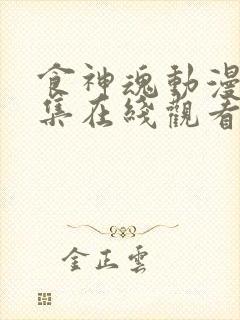 食神魂動漫
集在綫觀看
金正雲